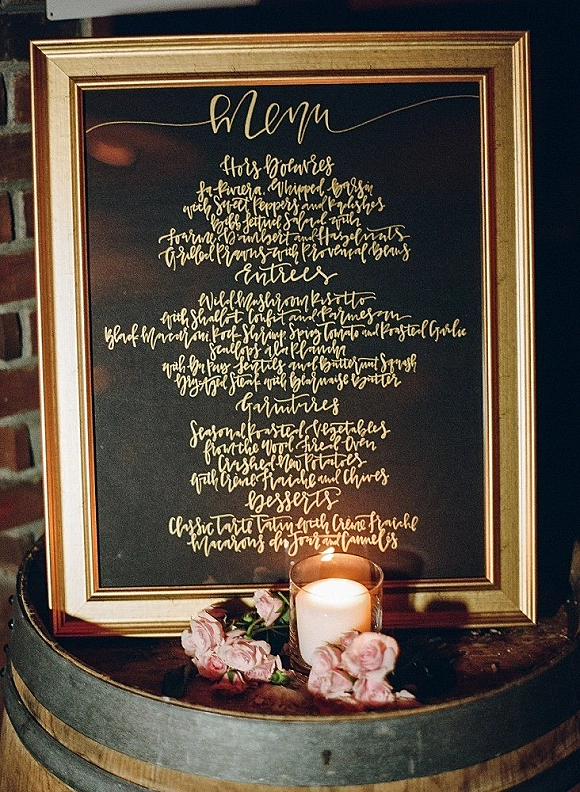 Menu
Hors Doeuvres
La Riviera, Whipped Garlic
with Sweet Peppers and Radishes
Bibb Lettuce Salad with
Fourme D'ambert and Hazelnuts
Grilled Prawns with Provencal Beans
Entrees
Wild Mushroom Risotto
with Shallot Confit and Parmesan
Black Macaroni, Rock Shrimp, Spicy Tomato and Roasted Garlic
Scallops a la Plancha
with Du Puy Lentils and Butternut Squash
Dry-Aged Steak with Bearnaise Butter
Garnitures
Seasonal Roasted Vegetables
from the Wood Fired Oven
Crashed New Potatoes
with Crème Fraiche and Chives
Desserts
Classic Tarte Tatin with Crème Fraiche
Macarons du Jour and Canneles